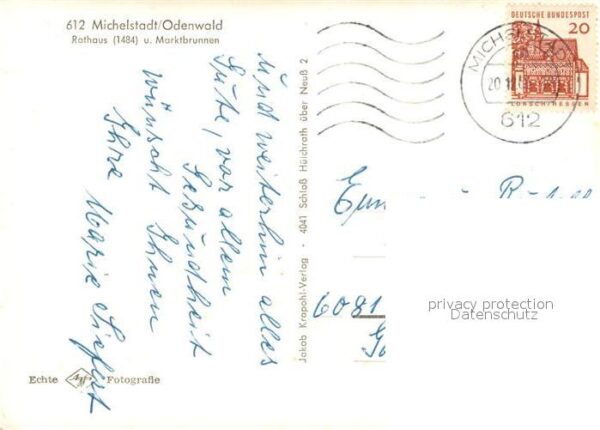 612 Michelstadt/Odenwald
Rathaus (1484) u. Marktbrunnen
und weiterhin alles
Gute, vor allem
Gesundheit
wünscht Ihnen
Ihre Marie Siefert
Jakob Krapohl-Verlag · 4041 Schloß Hülchrath über Neuß 2
Echte Agfa Fotografie
DEUTSCHE BUNDESPOST
20
LORSCH/HESSEN
612
6081
privacy protection
Datenschutz